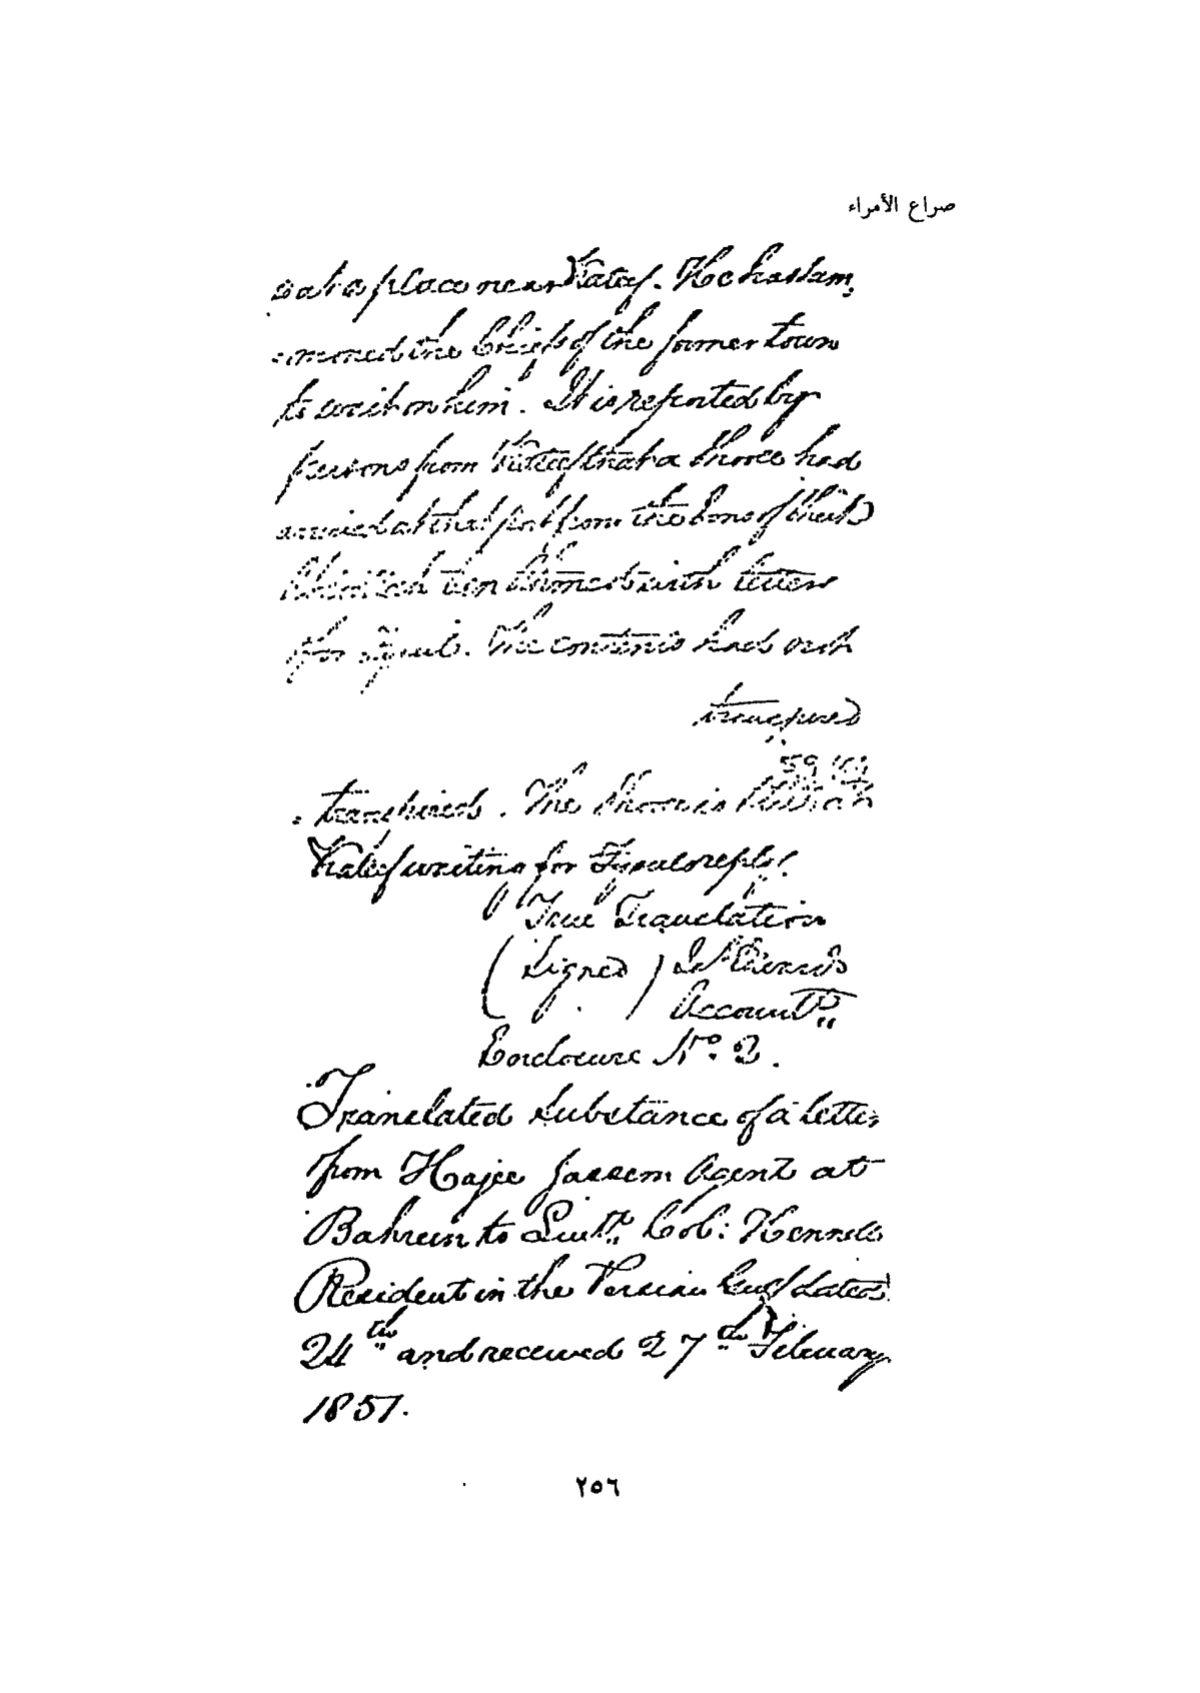 صراع الأمراء
at a place near Kateef. He has sum,
-moned the Chiefs of the former town
to wait on him. It is reported by
persons from Kateef that a Shooee had
arrived at that port from the Sons of Sheik
bin with letters
for Fysul. The contents had not
transpired
transpired. The Shooee is still at
Kateef waiting for Fysul's reply.
True Translation
(Signed)
Accountt.
Enclosure No. 2.
Translated substance of a letter
from Hajee Jassem Agent at
Bahrein to Lieutt. Col: Hennell
Resident in the Persian Gulf dated
24th and received 27th February
1851.
٢٥٦